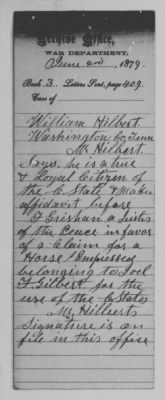 Archive Office,
WAR DEPARTMENT,
June 2nd, 1879.
Book 3. Letters Sent, page 409
Case of
William Hilbert
Washington Co, Tenn
Mr Hilbert
Says, he is a true
& Loyal Citizen of
the C State & Makes
affidavit before
F Grisham a Justis
of the Peace in favor
of a Claim for a
Horse Impressed
belonging to Joel
F Gilbert for the
use of the C States
Mr Hilberts
Signature is on
file in this office